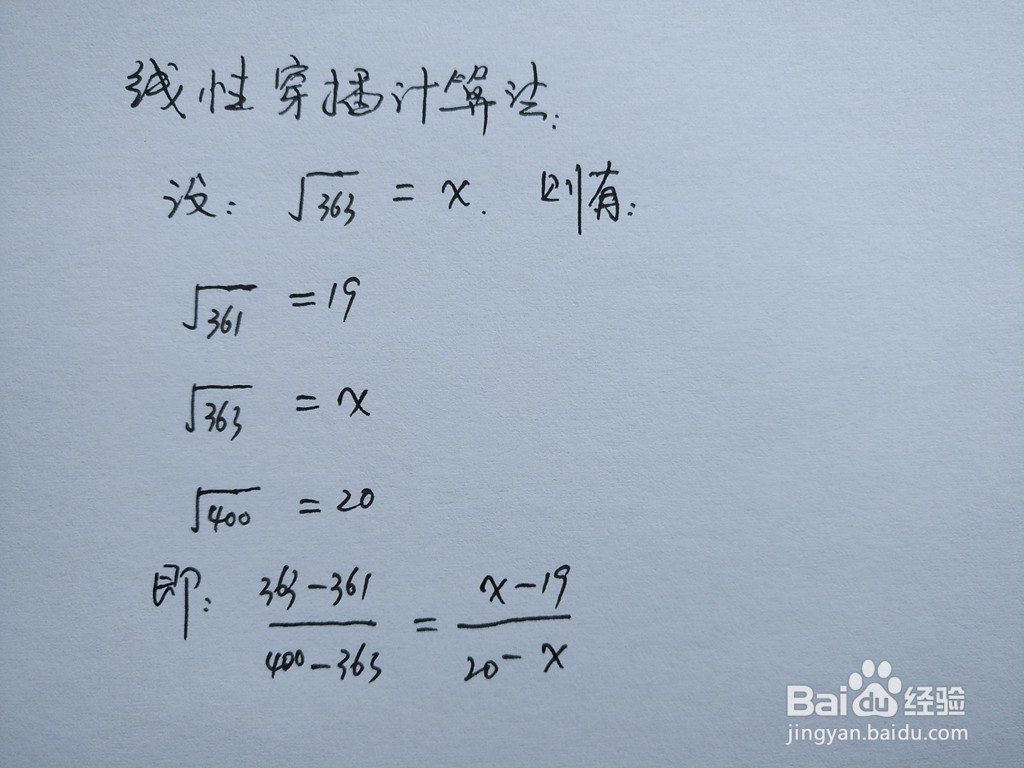 线性穿插计算法:
设: √363 = x. 则有:
√361 = 19
√363 = x
√400 = 20
即: (363-361)/(400-363) = (x-19)/(20-x)
Baidu经验
jingyan.baidu.com